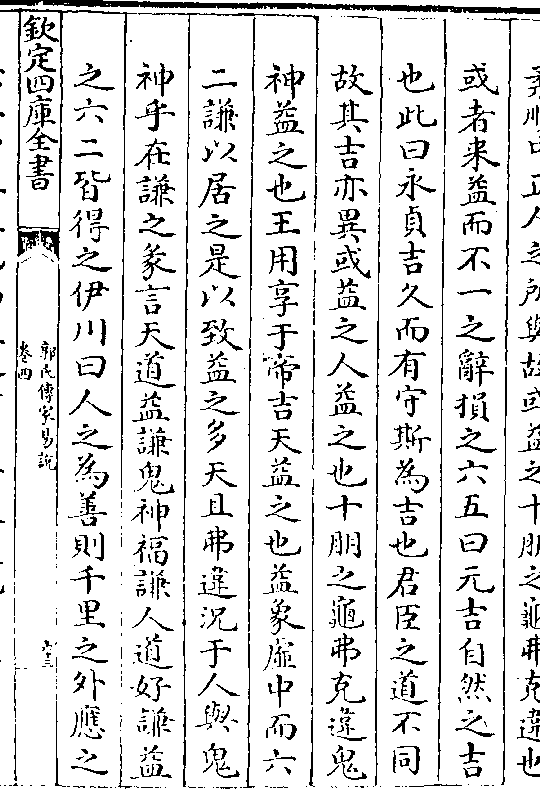 中正人之所與故或益之十朋之龜弗克違也
或者来益而不一之辭損之六五曰元吉自然之吉
也此曰永貞吉久而有守斯為吉也君臣之道不同
故其吉亦異或益之人益之也十朋之龜弗克違鬼
神益之也王用享于帝吉天益之也益象虛中而六
二謙以居之是以致益之多天且弗違況于人與鬼
神乎在謙之彖言天道益謙鬼神福謙人道好謙益
之六二皆得之伊川曰人之為善則千里之外應之
欽定四庫全書
郭氏傳家易說
卷四
六十三